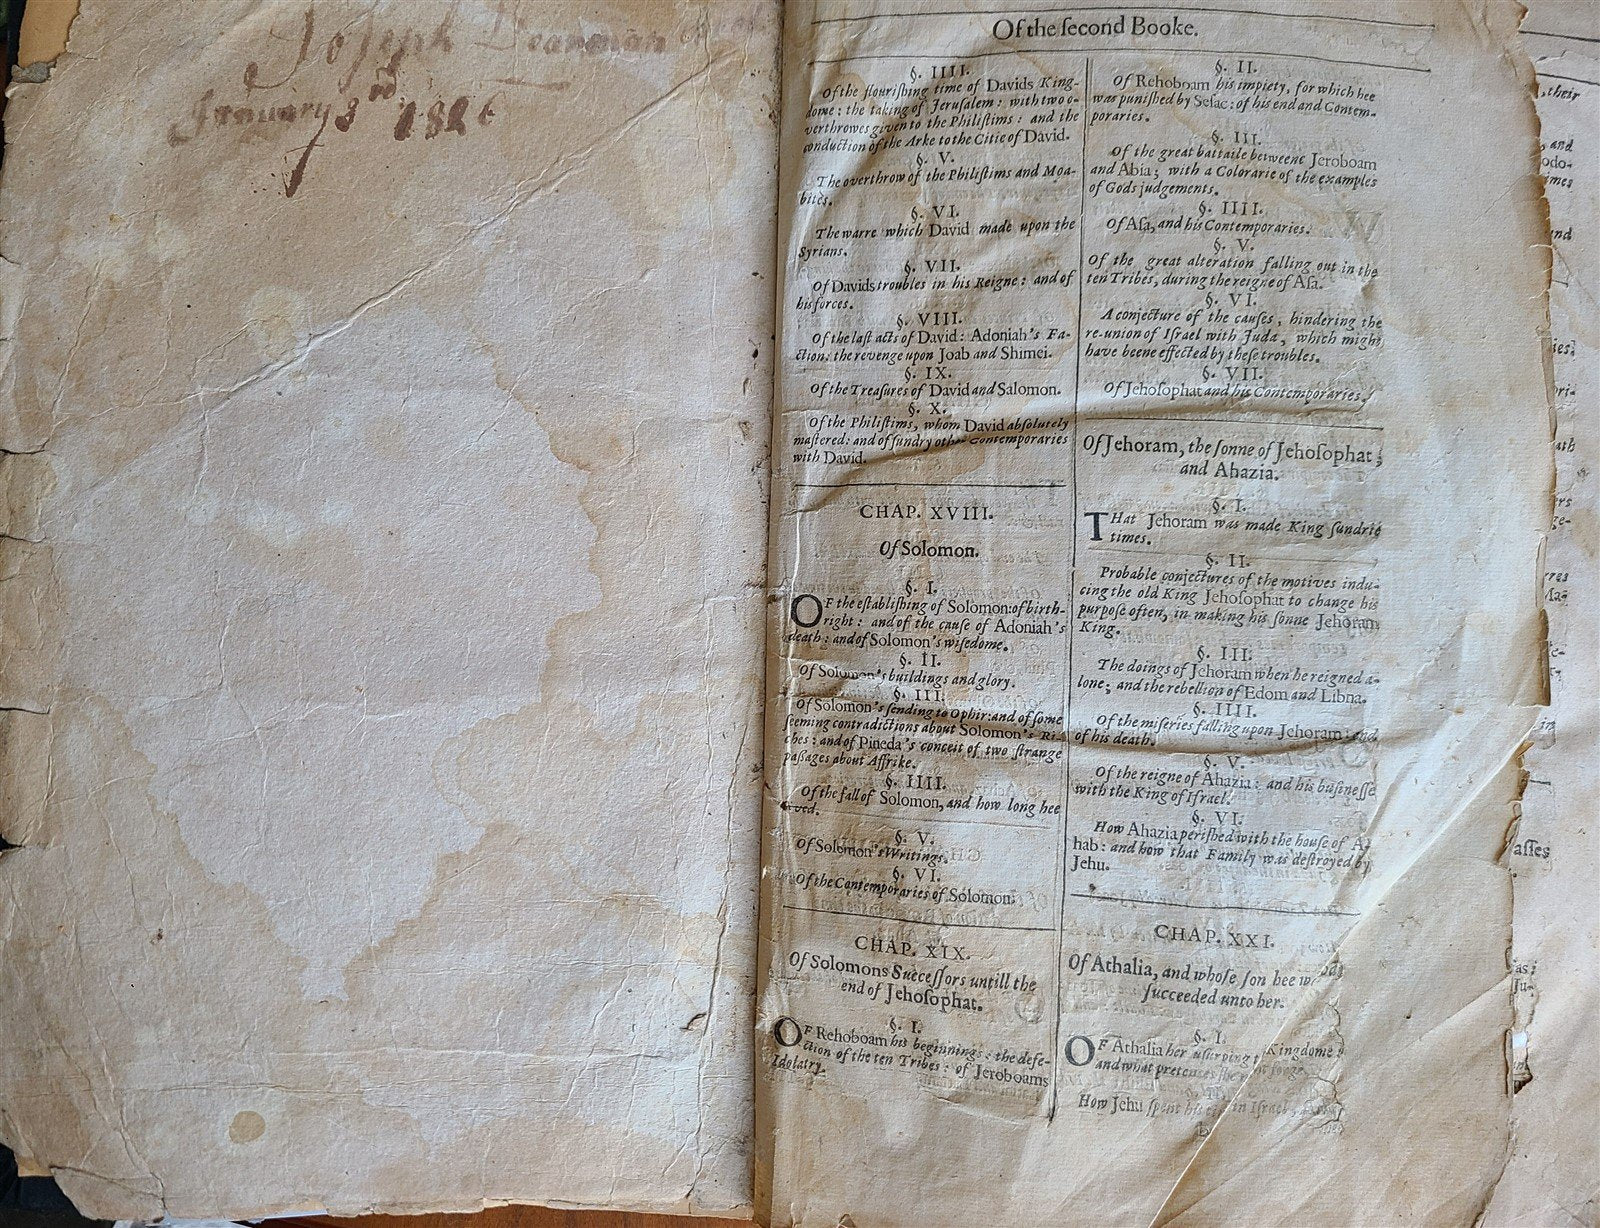 Joseph
January 3rd 182
Of the ſecond Booke.
§. IIII.
Of the flouriſhing time of Davids King-
dome: the taking of Jeruſalem: with two o-
verthrowes given to the Philiſtims: and the
conduction of the Arke to the Citie of David.
§. V.
The overthrow of the Philiſtims and Moa-
bites.
§. VI.
The warre which David made upon the
Syrians.
§. VII.
Of Davids troubles in his Reigne: and of
his forces.
§. VIII.
Of the laſt acts of David: Adoniah's Fa-
ction: the revenge upon Joab and Shimei.
§. IX.
Of the Treaſures of David and Salomon.
§. X.
Of the Philiſtims, whom David abſolutely
maſtered: and of ſundry other Contemporaries
with David.
CHAP. XVIII.
Of Solomon.
§. I.
OF the eſtabliſhing of Solomon: of birth-
right: and of the cauſe of Adoniah's
death: and of Solomon's wiſedome.
§. II.
Of Solomon's buildings and glory.
§. III.
Of Solomon's ſending to Ophir: and of ſome
ſeeming contradictions about Solomon's Ri-
ches: and of Pineda's conceit of two ſtrange
paſſages about Affrike.
§. IIII.
Of the fall of Solomon, and how long hee
§. V.
Of Solomon's Writings.
§. VI.
Of the Contemporaries of Solomon.
CHAP. XIX.
Of Solomons Succeſſors untill the
end of Jehoſophat.
§. I.
OF Rehoboam his beginnings: the defe-
ction of the ten Tribes: of Jeroboams
Idolatry.
§. II.
Of Rehoboam his impiety, for which hee
was puniſhed by Seſac: of his end and Contem-
poraries.
§. III.
Of the great battaile betweene Jeroboam
and Abia; with a Colorarie of the examples
of Gods judgements.
§. IIII.
Of Aſa, and his Contemporaries.
§. V.
Of the great alteration falling out in the
ten Tribes, during the reigne of Aſa.
§. VI.
A conjecture of the cauſes, hindering the
re-union of Iſrael with Juda, which might
have beene effected by theſe troubles.
§. VII.
Of Jehoſophat and his Contemporaries.
Of Jehoram, the ſonne of Jehoſophat;
and Ahazia.
§. I.
THat Jehoram was made King ſundrie
times.
§. II.
Probable conjectures of the motives indu-
cing the old King Jehoſophat to change his
purpoſe often, in making his ſonne Jehoram
King.
§. III.
The doings of Jehoram when he reigned a-
lone; and the rebellion of Edom and Libna.
§. IIII.
Of the miſeries falling upon Jehoram: and
of his death.
§. V.
Of the reigne of Ahazia: and his buſineſſe
with the King of Iſrael.
§. VI.
How Ahazia periſhed with the houſe of A-
hab: and how that Family was deſtroyed by
Jehu.
CHAP. XXI.
Of Athalia, and whoſe ſon hee
ſucceeded unto her.
§. I.
OF Athalia her uſurping Kingdome:
and what pretences
How Jehu ſpent his in Iſrael,